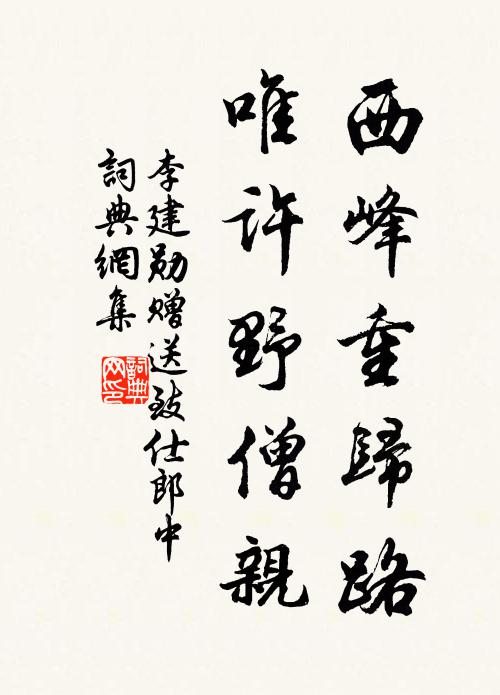 西峰重歸路
唯許野僧親
李建勋贈送致仕郎中
詞典網集
詞典
网印